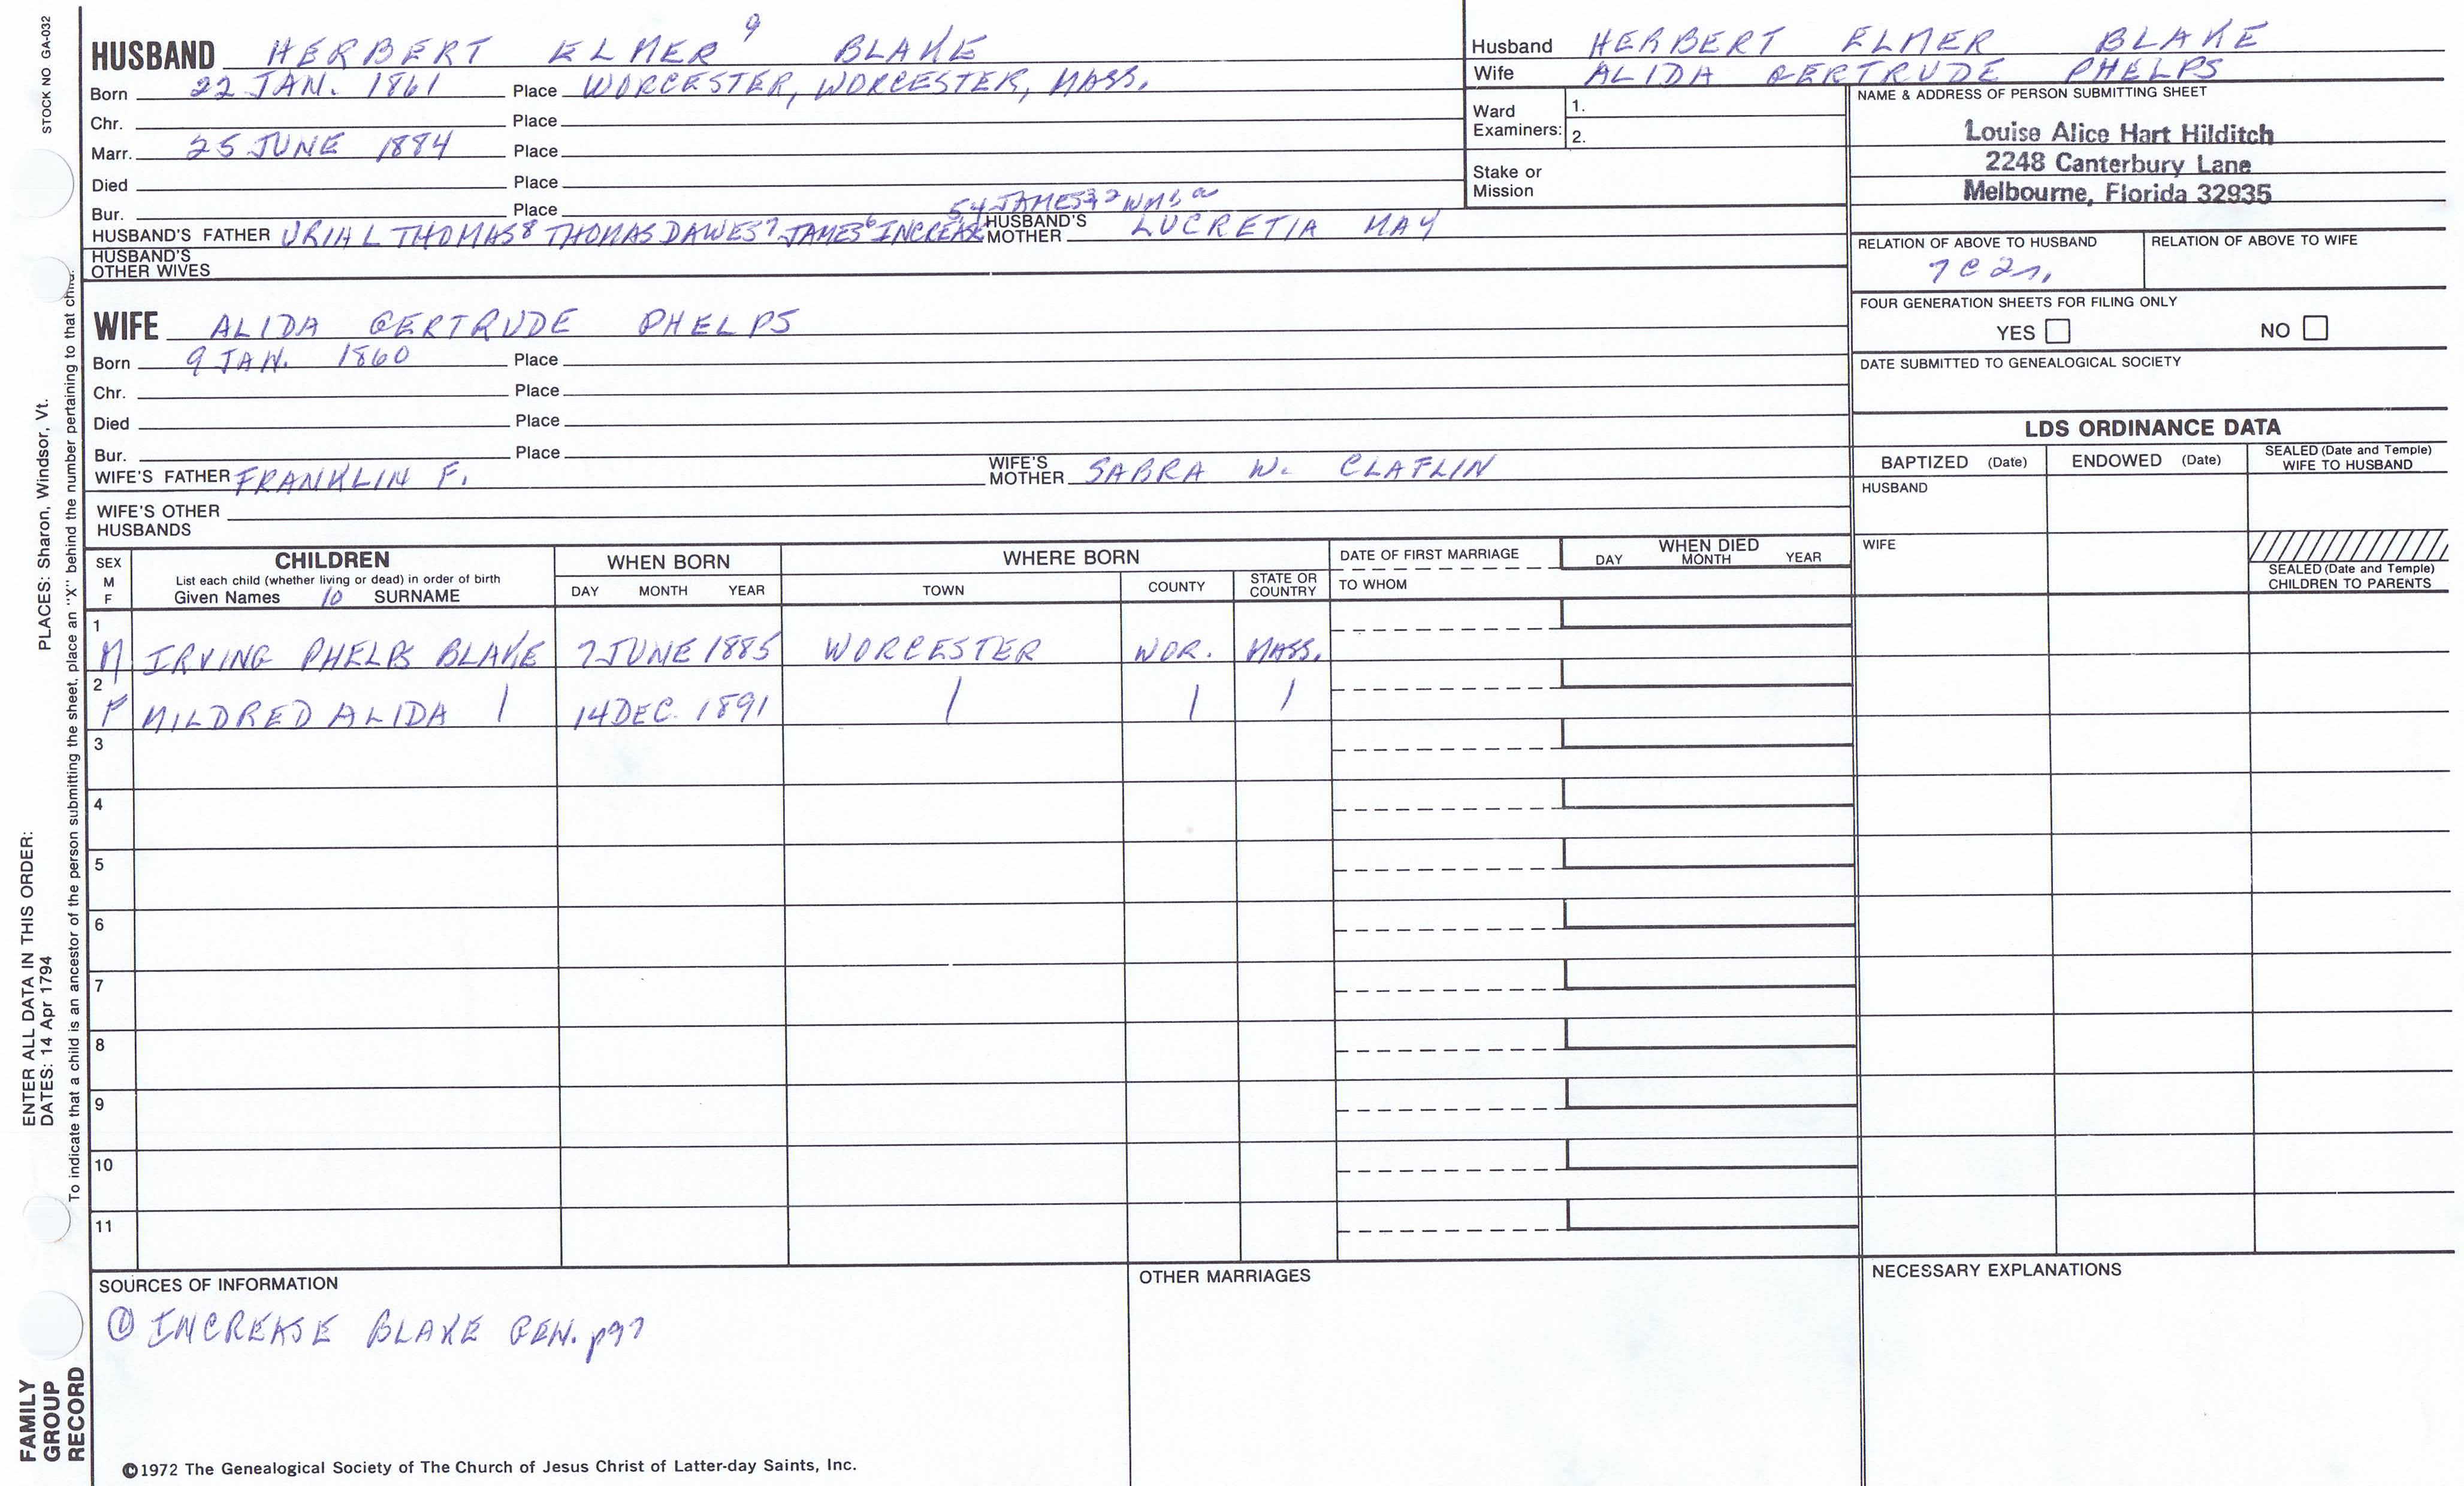 STOCK NO GA-032
HUSBAND HERBERT ELMER 9 BLAKE
Born 22 JAN. 1861 Place WORCESTER, WORCESTER, MASS.
Chr. Place
Marr. 25 JUNE 1884 Place
Died Place
Bur. Place
HUSBAND'S FATHER URIAL THOMAS8 THOMAS DAWES7 JAMES6 INCREASE
54 JAMES32 WM
HUSBAND'S MOTHER LUCRETIA MAY
HUSBAND'S OTHER WIVES
WIFE ALIDA GERTRUDE PHELPS
Born 9 JAN. 1860 Place
Chr. Place
Died Place
Bur. Place
WIFE'S FATHER FRANKLIN F. WIFE'S MOTHER SABRA W. CLAFLIN
WIFE'S OTHER HUSBANDS
Husband HERBERT ELMER BLAKE
Wife ALIDA GERTRUDE PHELPS
Ward Examiners: 1.
2.
Stake or Mission
NAME & ADDRESS OF PERSON SUBMITTING SHEET
Louise Alice Hart Hilditch
2248 Canterbury Lane
Melbourne, Florida 32935
RELATION OF ABOVE TO HUSBAND RELATION OF ABOVE TO WIFE
7C2r,
FOUR GENERATION SHEETS FOR FILING ONLY
YES NO
DATE SUBMITTED TO GENEALOGICAL SOCIETY
LDS ORDINANCE DATA
BAPTIZED (Date) ENDOWED (Date) SEALED (Date and Temple) WIFE TO HUSBAND
HUSBAND
WIFE
SEALED (Date and Temple) CHILDREN TO PARENTS
SEX M F
CHILDREN
List each child (whether living or dead) in order of birth
Given Names 10 SURNAME
WHEN BORN
DAY MONTH YEAR
WHERE BORN
TOWN COUNTY STATE OR COUNTRY
DATE OF FIRST MARRIAGE
TO WHOM
WHEN DIED
DAY MONTH YEAR
1
M IRVING PHELPS BLAKE 7 JUNE 1885 WORCESTER WOR. MASS.
2
F MILDRED ALIDA | 14 DEC. 1891 | | |
3
4
5
6
7
8
9
10
11
SOURCES OF INFORMATION
① INCREASE BLAKE GEN. p97
OTHER MARRIAGES
NECESSARY EXPLANATIONS
©1972 The Genealogical Society of The Church of Jesus Christ of Latter-day Saints, Inc.
FAMILY GROUP RECORD
ENTER ALL DATA IN THIS ORDER:
DATES: 14 Apr 1794 PLACES: Sharon, Windsor, Vt.
To indicate that a child is an ancestor of the person submitting the sheet, place an "X" behind the number pertaining to that child.